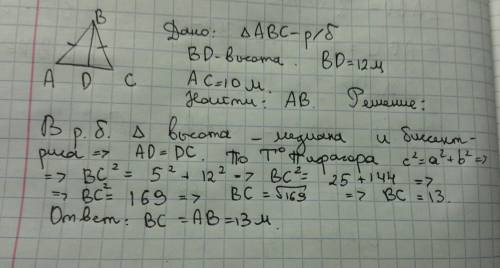 B
A D C
Дано: △ABC-р/б
BD-высота. BD=12м
AC=10 м.
Найти: AB. Решение:
В р. б. △ высота – медиана и биссект-
риса => AD=DC. По Т° Пифагора c²=a²+b² =>
=> BC² = 5² + 12² => BC² = 25+144 =>
=> BC² = 169 => BC = √169 => BC = 13.
Ответ: BC = AB = 13 м.